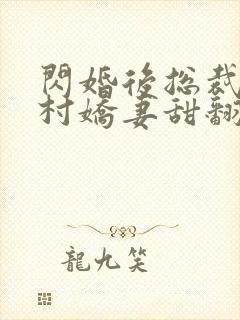 閃婚後总裁
村嬌妻甜翻
龍九笑